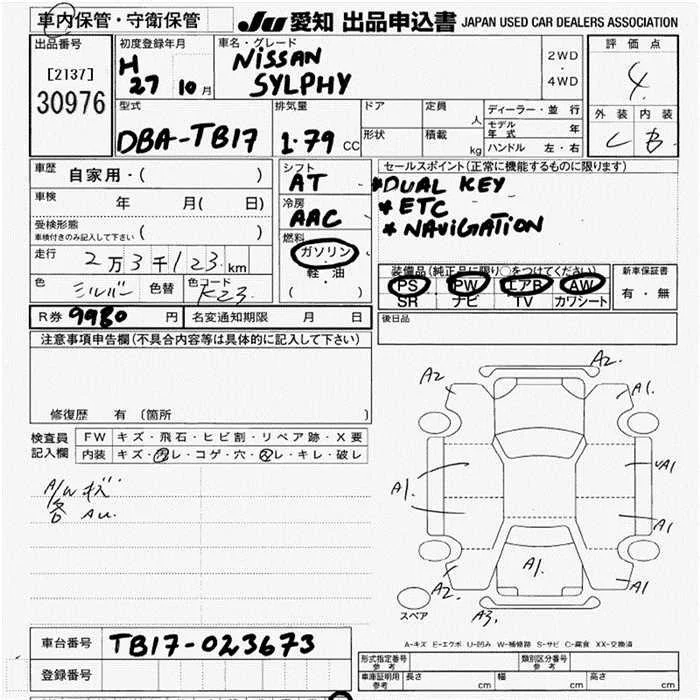 車内保管・守衛保管
JU 愛知 出品申込書 JAPAN USED CAR DEALERS ASSOCIATION
出品番号
[2137]
30976
初度登録年月
H
27 10 月
車名・グレード
NISSAN
SYLPHY
2WD
・
4WD
評価点
4
外装 内装
C B
型式
DBA-TB17
排気量
1.79 CC
ドア
形状
定員
人
積載
kg
ディーラー・並行
モデル年式 年
ハンドル 左・右
車歴 自家用・( )
車検 年 月( 日)
受検形態
車検付きのみ記入して下さい ( )
走行 2万3千123 km
色 シルバー 色替 色コード K23
シフト
AT
冷房
AAC
燃料
ガソリン
・
軽油
( )
セールスポイント(正常に機能するものに限ります)
*DUAL KEY
* ETC
* NAVIGATION
装備品(純正品に限り○をつけてください)
PS PW エアB AW
SR ナビ TV カワシート
新車保証書
有・無
R券 9980 円 名変通知期限 月 日
後日品
注意事項申告欄(不具合内容等は具体的に記入して下さい)
修復歴 有 (箇所 )
検査員記入欄
FW キズ・飛石・ヒビ割・リペア跡・X要
内装 キズ・汚レ・コゲ・穴・スレ・キレ・破レ
A/W キズ
各 AU.
A2 A2.
A1.
A1. UA1
A1
A2. A1. A1
A3.
スペア
A-キズ E-エクボ U-凹み W-補修跡 S-サビ C-腐食 XX-交換済
車台番号 TB17-023673
登録番号
形式指定番号
参考
類別区分番号
参考
車庫証明用
参考
長さ cm 幅 cm 高さ cm